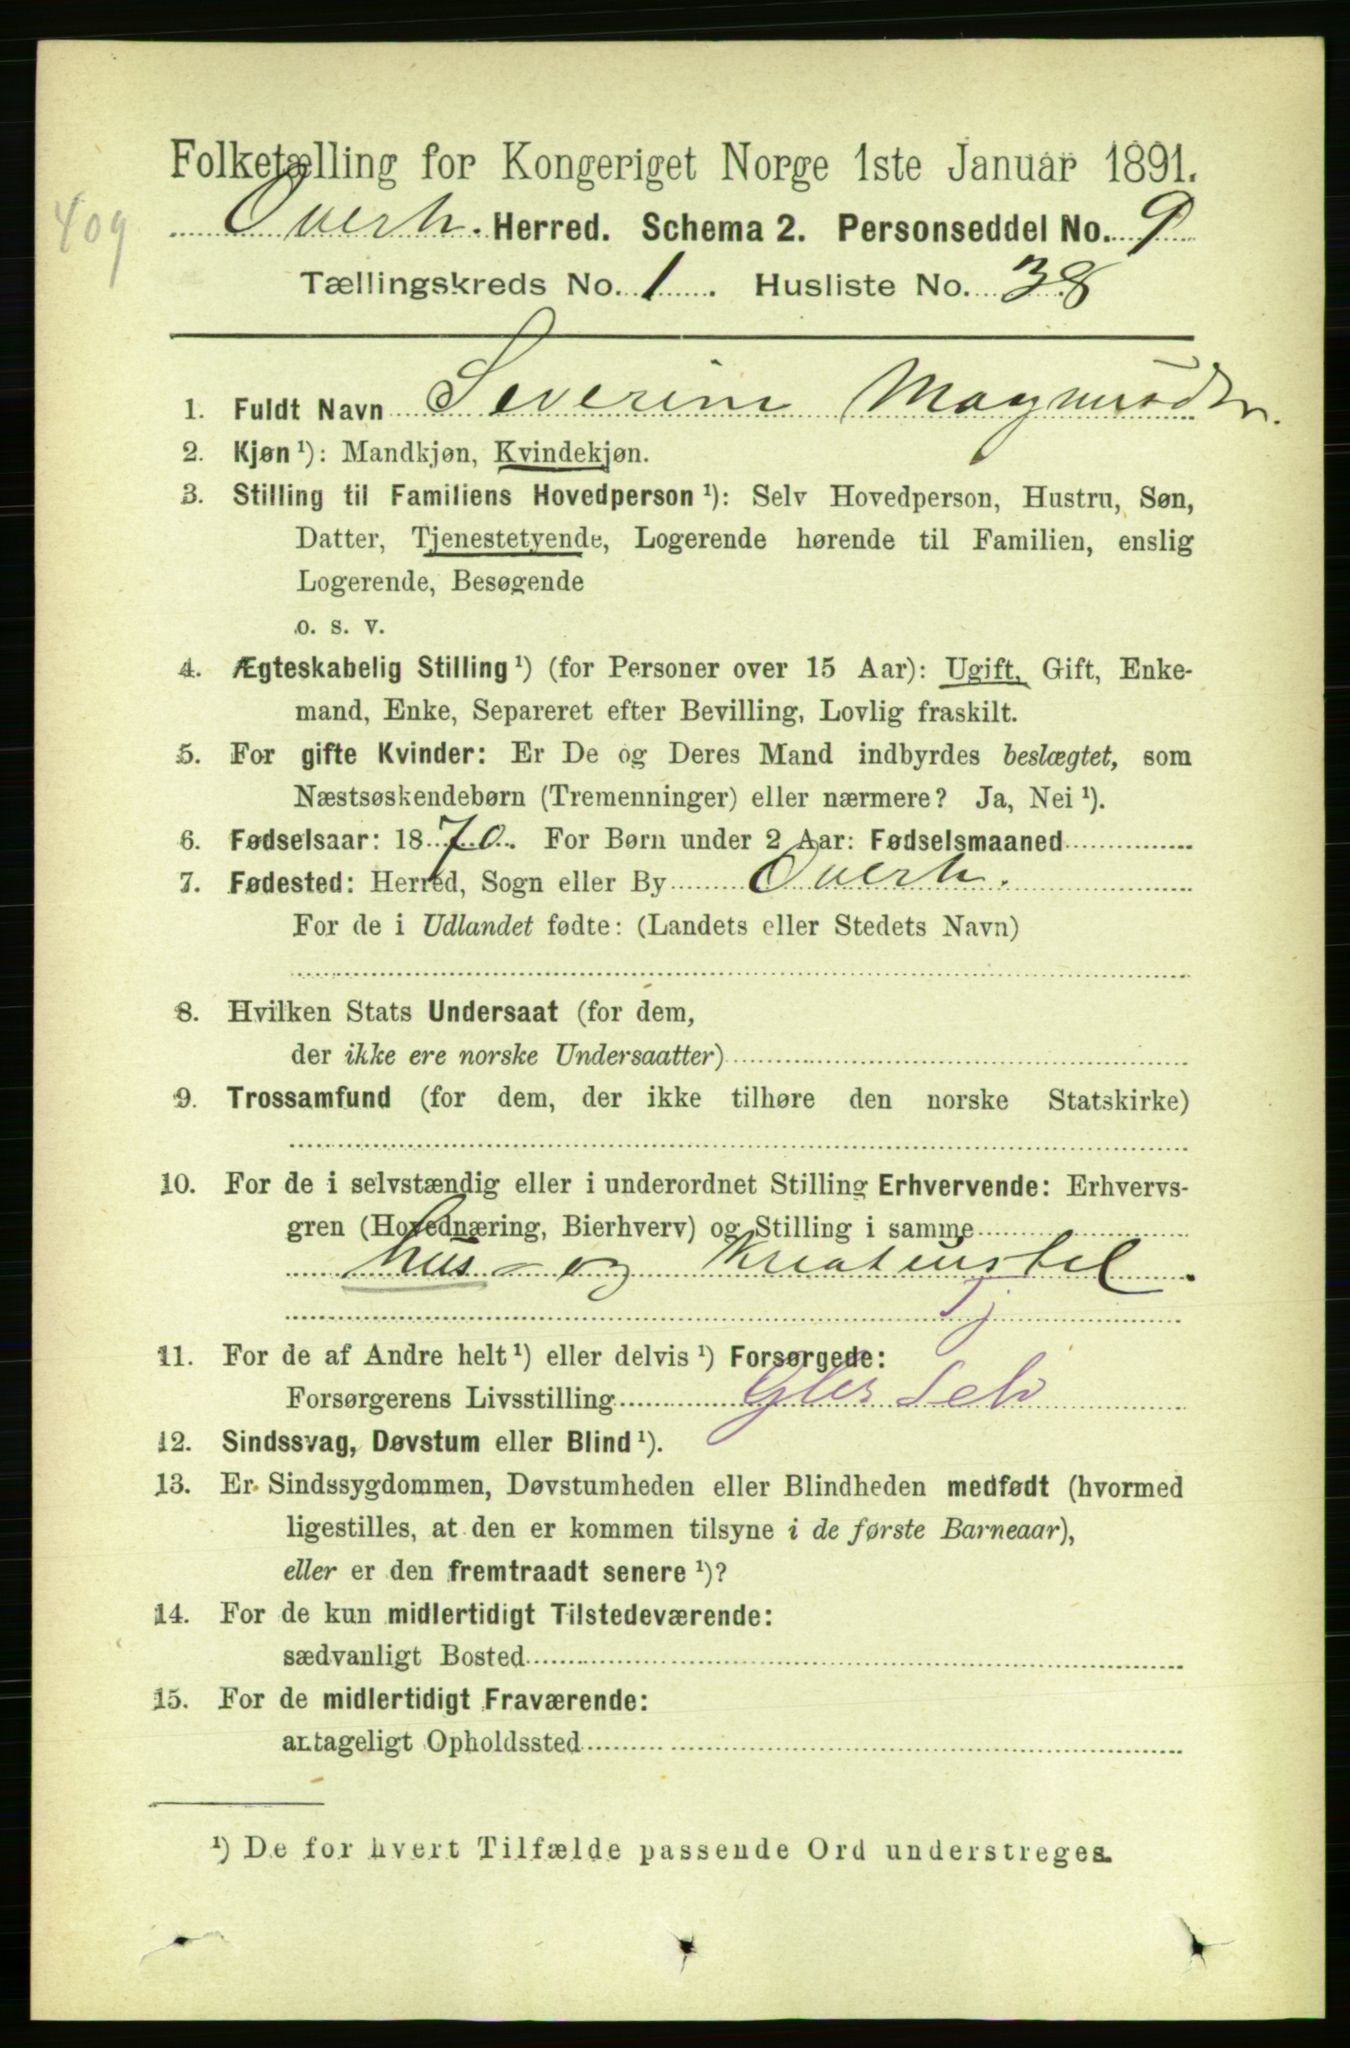 409
Folketælling for Kongeriget Norge 1ste Januar 1891.
Overh. Herred. Schema 2. Personseddel No. 9
Tællingskreds No. 1. Husliste No. 38
1. Fuldt Navn Severine Magnusdtr.
2. Kjøn ¹): Mandkjøn, Kvindekjøn.
3. Stilling til Familiens Hovedperson ¹): Selv Hovedperson, Hustru, Søn,
Datter, Tjenestetyende, Logerende hørende til Familien, enslig
Logerende, Besøgende
o. s. v.
4. Ægteskabelig Stilling ¹) (for Personer over 15 Aar): Ugift, Gift, Enke-
mand, Enke, Separeret efter Bevilling, Lovlig fraskilt.
5. For gifte Kvinder: Er De og Deres Mand indbyrdes beslægtet, som
Næstsøskendebørn (Tremenninger) eller nærmere? Ja, Nei ¹).
6. Fødselsaar: 1870. For Børn under 2 Aar: Fødselsmaaned
7. Fødested: Herred, Sogn eller By Overh.
For de i Udlandet fødte: (Landets eller Stedets Navn)
8. Hvilken Stats Undersaat (for dem,
der ikke ere norske Undersaatter)
9. Trossamfund (for dem, der ikke tilhøre den norske Statskirke)
10. For de i selvstændig eller i underordnet Stilling Erhvervende: Erhvervs-
gren (Hovednæring, Bierhverv) og Stilling i samme
hus- og Kreaturstel.
Tj
11. For de af Andre helt ¹) eller delvis ¹) Forsørgede:
Forsørgerens Livsstilling Gbr Selv
12. Sindssvag, Døvstum eller Blind ¹).
13. Er Sindssygdommen, Døvstumheden eller Blindheden medfødt (hvormed
ligestilles, at den er kommen tilsyne i de første Barneaar),
eller er den fremtraadt senere ¹)?
14. For de kun midlertidigt Tilstedeværende:
sædvanligt Bosted
15. For de midlertidigt Fraværende:
antageligt Opholdssted
¹) De for hvert Tilfælde passende Ord understreges.